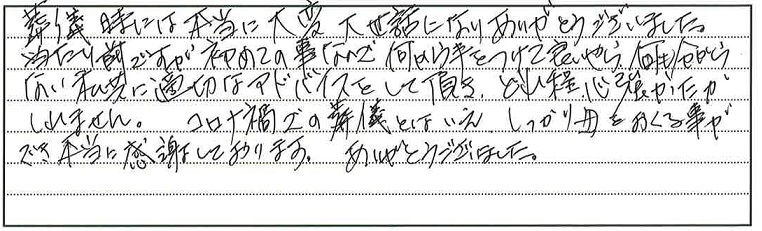 葬儀時には本当に大変大世話になりありがとうございました。
当たり前ですが初めての事なので何から手をつけて良いやら、何も分から
ない私共に適切なアドバイスをして頂き、どれ程心強かったか
しれません。 コロナ禍での葬儀とはいえ しっかり母をおくる事が
でき本当に感謝しております。 ありがとうございました。